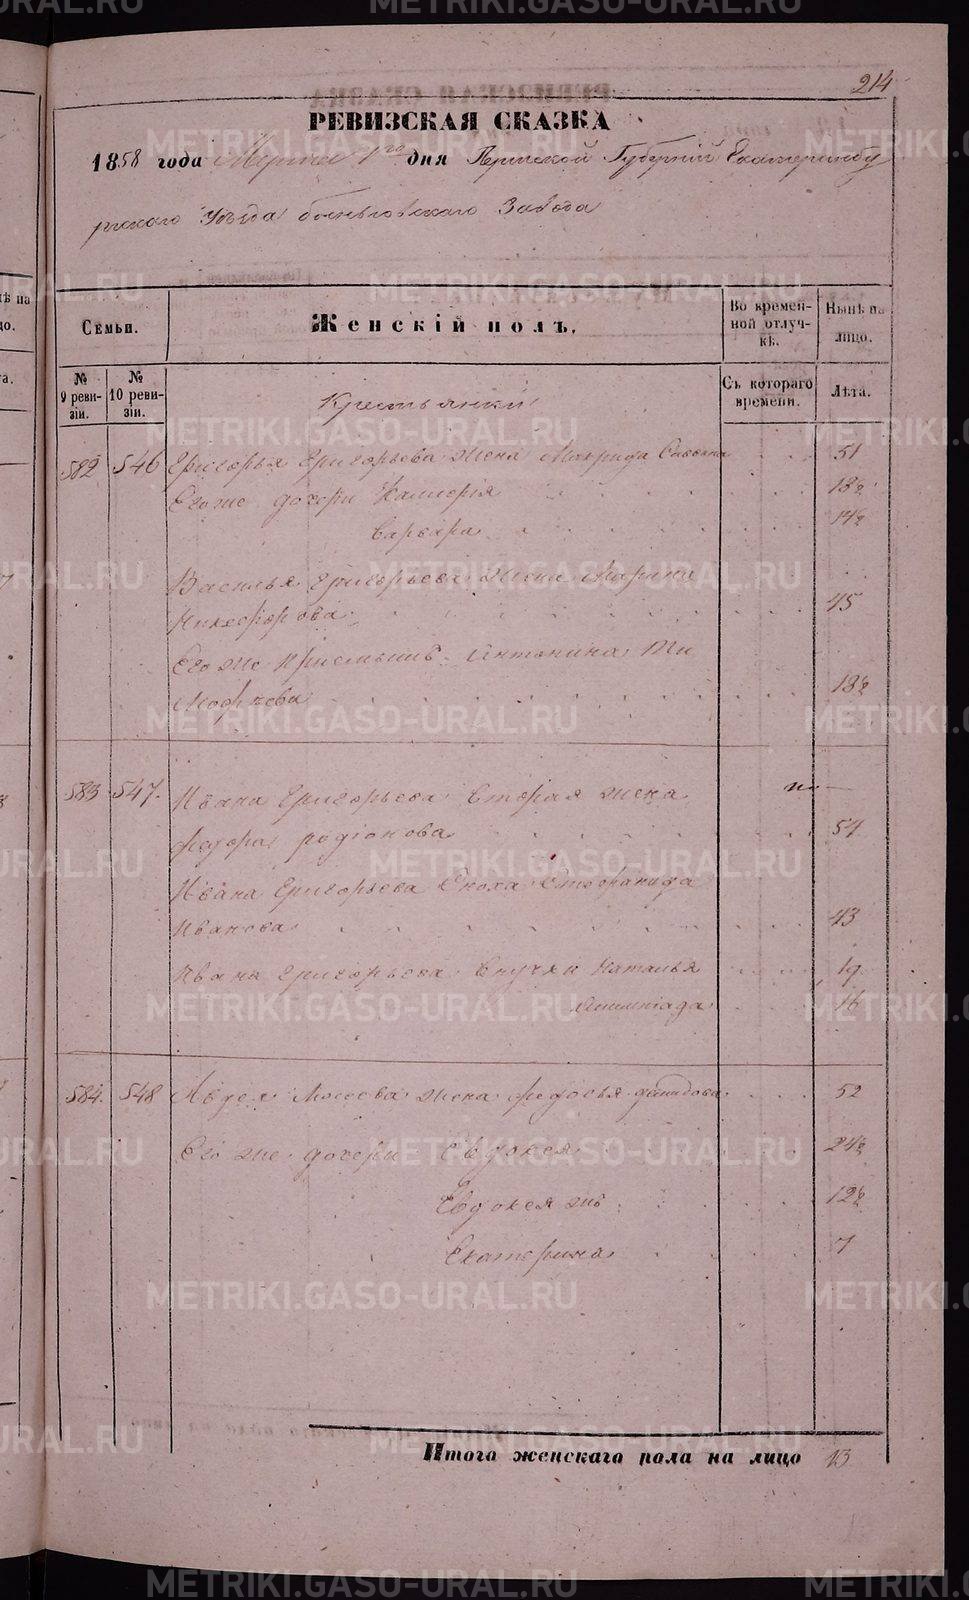 214
РЕВИЗСКАЯ СКАЗКА
1858 года Марта 1го дня Пермской Губерніи Екатеринбу
ргскаго Уѣзда Быньговскаго Завода
Семьи.
Женскій полъ.
Во времен-
ной отлуч-
кѣ.
Нынѣ на
лицо.
№
9 реви-
зіи.
№
10 реви-
зіи.
Съ котораго
времени.
Лѣта.
Крестьянки
582 546 Григорья Григорьева жена Макрида Савина 51
Его же дочери Калисрія 18½
Варвара 14½
Василья Григорьева жена Марина
Никифорова 45
Его же Приемышъ Антонина Ти
мофѣева 18½
583 547. Ивана Григорьева Вторая жена
Федора родіонова 54
Ивана Григорьева Сноха Стефанида
Иванова 43
Ивана Григорьева Внучки Наталья 19
Алимпіада 16
584. 548 Авдея Мосеева жена федосья давидова 52
Его же дочери Евдокея 24½
Евдокея жъ 12½
Екатерина 7
Итого женскаго пола на лицо 13
METRIKI.GASO-URAL.RU